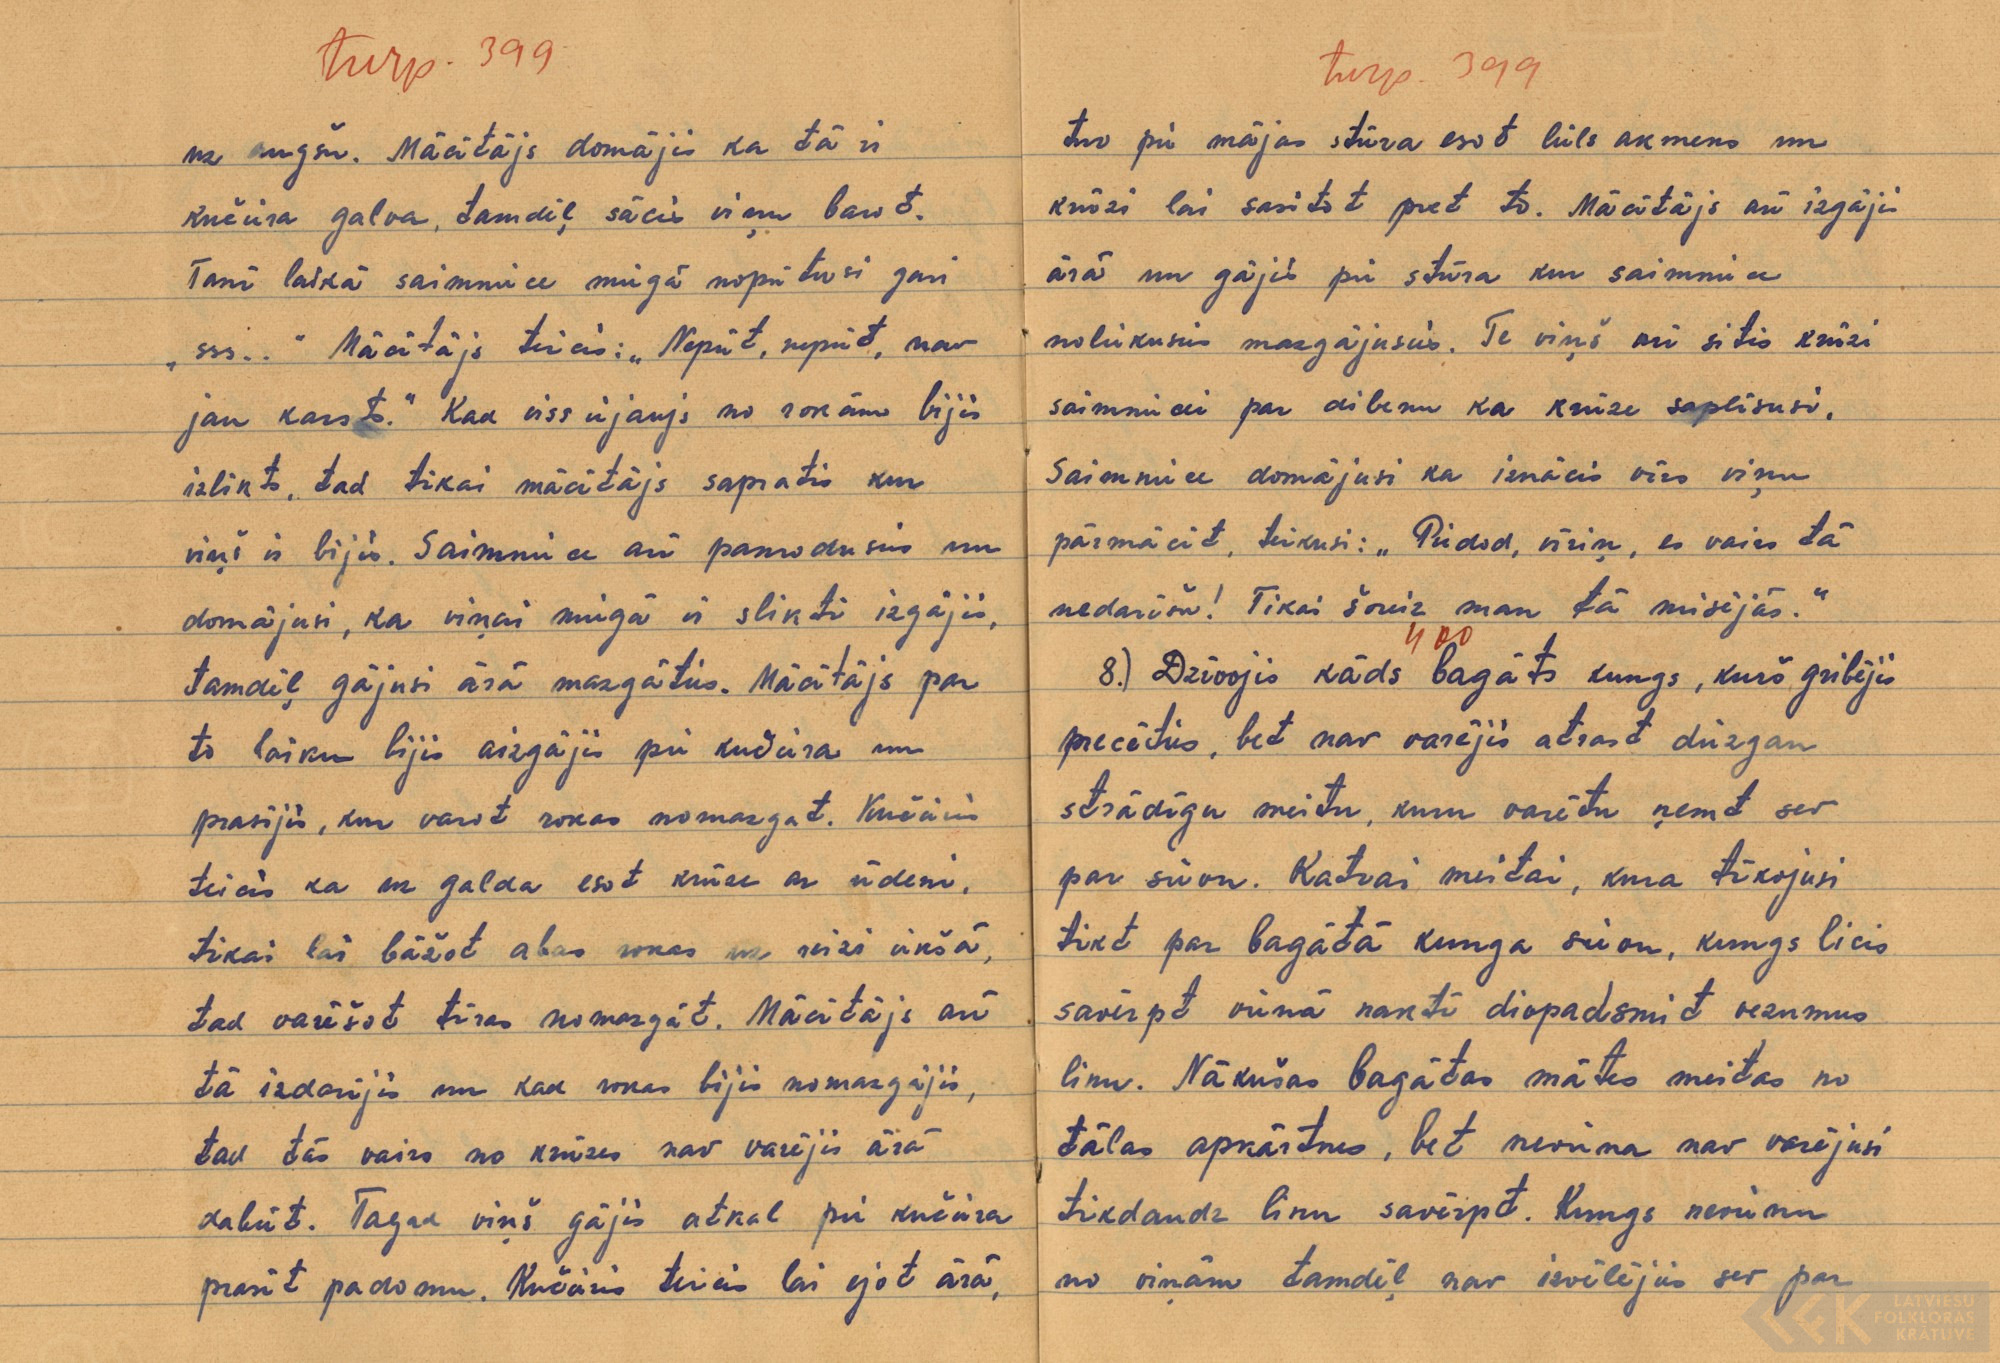 turp. 399
uz augšu. Mācītājs domājis ka tā ir
kučiera galva, tamdēļ sācis viņu barot.
Tanī laikā saimniece miegā nopūtusi gari
„sss..“ Mācītājs teicis: „Nepūt, nepūt, nav
jau karsts.“ Kad viss iejaujs no rokām bijis
izlikts, tad tikai mācītājs sapratis kur
viņš ir bijis. Saimniece arī pamodusies un
domājusi, ka viņai miegā ir slikti izgājis,
tamdēļ gājusi ārā mazgāties. Mācītājs par
to laiku bijis aizgājis pie kučiera un
prasījis, kur varot rokas nomazgāt. Kučieris
teicis ka uz galda esot krūze ar ūdeni,
tikai lai bāžot abas rokas uz reizi iekšā,
tad varēšot tīras nomazgāt. Mācītājs arī
tā izdarījis un kad rokas bijis nomazgājis,
tad tās vairs no krūzes nav varējis ārā
dabūt. Tagad viņš gājis atkal pie kučiera
prasīt padomu. Kučieris teicis lai ejot ārā,
turp. 399
tur pie mājas stūra esot liels akmens un
krūzi lai sasitot pret to. Mācītājs arī izgājis
ārā un gājis pie stūra kur saimniece
noliekusies mazgājusies. Te viņš arī sitis krūzi
saimniecei par dibenu ka krūze saplīsusi.
Saimniece domājusi ka iznācis vīrs viņu
pārmācīt, teikusi: „Piedod, vīriņ, es vairs tā
nedarīšu! Tikai šoreiz man tā misējās.“
400
8.) Dzīvojis kāds bagāts kungs, kurš gribējis
precēties, bet nav varējis atrast diezgan
strādīgu meitu, kuru varētu ņemt sev
par sievu. Katrai meitai, kura tīkojusi
tikt par bagātā kunga sievu, kungs licis
savērpt vienā naktī divpadsmit vezumus
linu. Nākušas bagātas mātes meitas no
tālas apkārtnes, bet neviena nav varējusi
tikdaudz linu savērpt. Kungs nevienu
no viņām tamdēļ nav izvēlējies sev par
LATVIEŠU
FOLKLORAS
KRĀTUVE